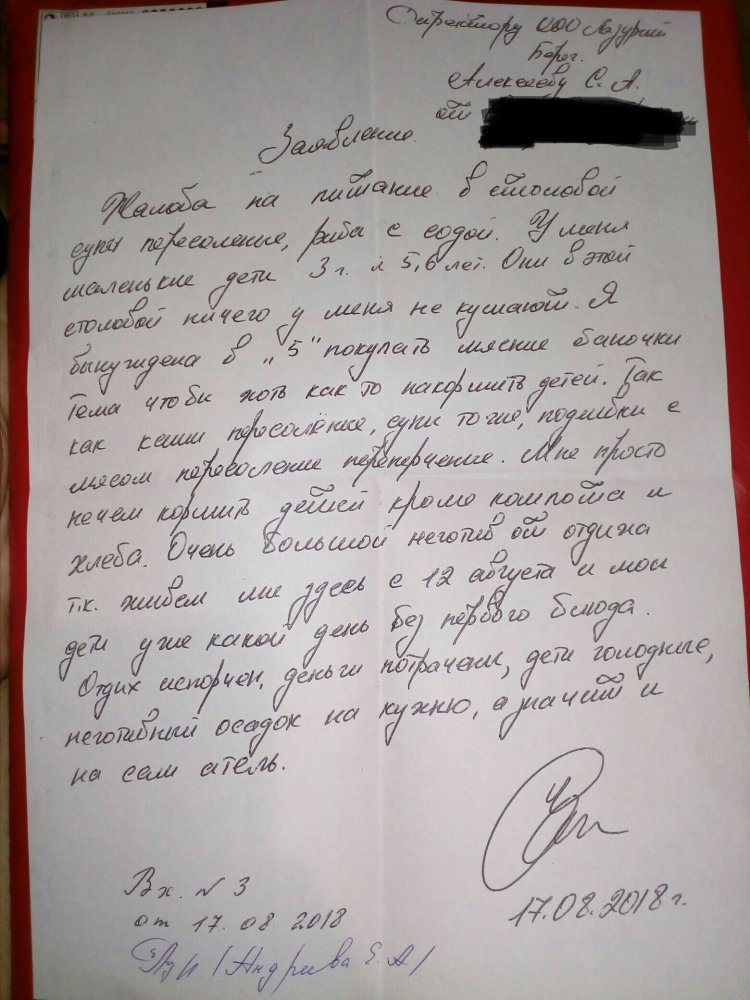 Директору ООО Лазурний
Берег.
Алексееву С. А.
от
Заявление.
Жалоба на питание в столовой
супы пересоление, риба с содой. У меня
маленькие дети 3 г. и 5,6 лет. Они в этой
столовой ничего у меня не кушают. Я
вынуждена в „5" покупать мясние баночки
Тема чтоби хоть как то накормить детей. Так
как каши пересолёние, супи тоже, подливки с
мясом пересоление переперчение. Мне просто
нечем кормить детей кроме компота и
хлеба. Очень большой неготив от отдиха
т.к. живем ми здесь с 12 августа и мои
дети уже какой день без первого блюда.
Отдих испорчен, деньги потрачени, дети голодние,
неготивний осадок на кухню, а значит и
на сам атель.
17.08.2018 г.
Вх. № 3
от 17.08 2018
/Андриева Е. А/